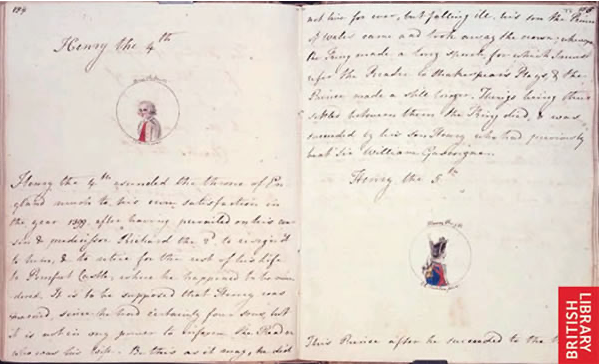 Henry the 4th
Henry the 4th ascended the throne of En-
gland much to his own satisfaction in
the year 1399, after having prevailed on his cou-
sin & predecessor Richard the 2d, to resign it
to him, & to retire for the rest of his life
to Pomfret Castle, where he happened to be mur-
dered. It is to be supposed that Henry was
married, since he had certainly four sons, but
it is not in my power to inform the Reader
who was his Wife. Be this as it may, he did
not live for ever, but falling ill, his son the Prince
of Wales came and took away the crown; whereupon
the King made a long speech, for which I must
refer the Reader to Shakespear's Plays, & the
Prince made a still longer. Things being thus
settled between them the King died, & was
succeeded by his son Henry who had previously
beat Sir William Gascoigne.
Henry the 5th
Henry the 5th
This Prince after he succeeded to the
BRITISH
LIBRARY